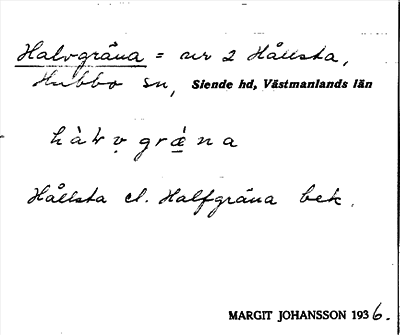 Halvgräna = nr 2 Hållsta,
Hubbo sn, Siende hd, Västmanlands län
hàlvgrä̀na
Hållsta el. Halfgräna bek.
MARGIT JOHANSSON 1936.